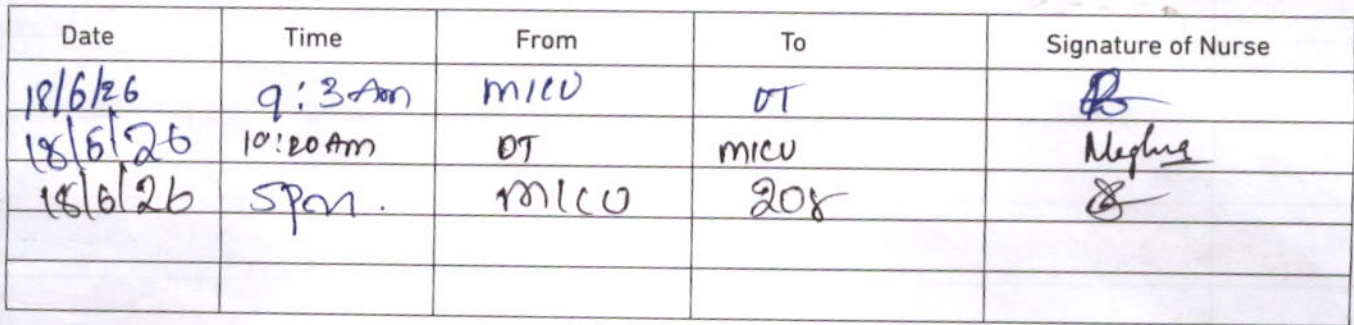 Date Time From To Signature of Nurse
18/6/26 9:3 Am MICU OT
18/6/26 10:20 Am OT MICU Meghna
18/6/26 5pm. MICU 208